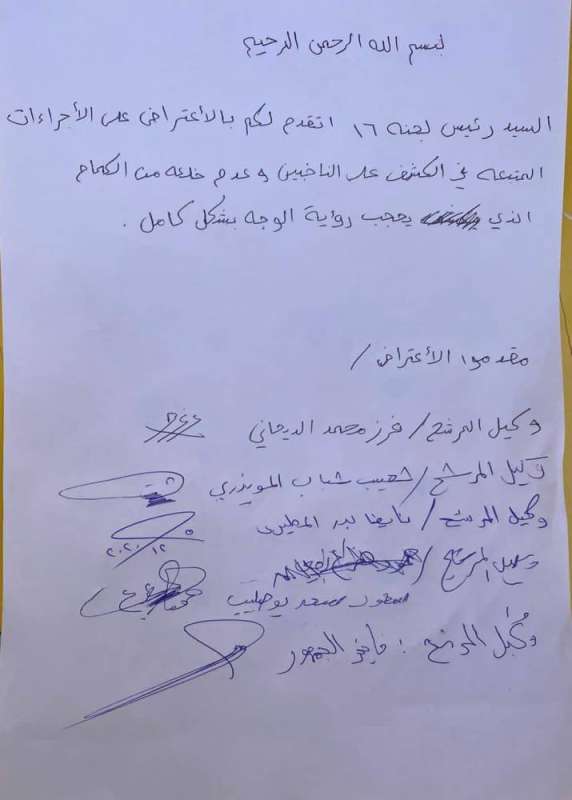 بسم الله الرحمن الرحيم
السيد رئيس لجنه ١٦ اتقدم لكم بالأعتراض على الأجراءات
المتبعه في الكشف على الناخبين وعدم خلعه من الكمام
الذي يحجب رواية الوجه بشكل كامل .
مقدموا الأعتراض /
وكيل المرشح / فرز محمد الديحاني
وكيل المرشح / شعيب شباب المويزري
وكيل المرشح / نايف بدر المطيري
٥/١٢/٢٠٢٠
وكيل المرشح /
محمد بو صليب
وكيل المرشح : فايز الجمهور